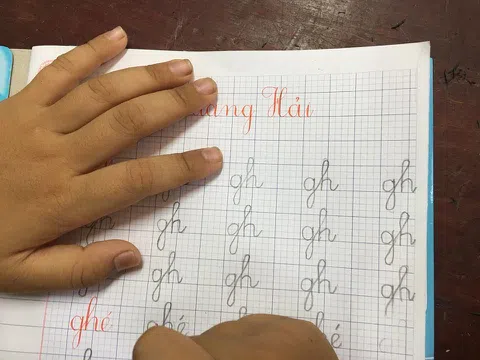 Hải
gh gh gh
gh gh gh gh gh
gh gh gh gh
ghé ghé